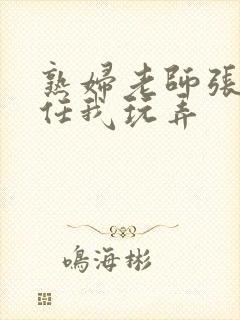 熟婦老師張
任我玩弄
鳴海彬